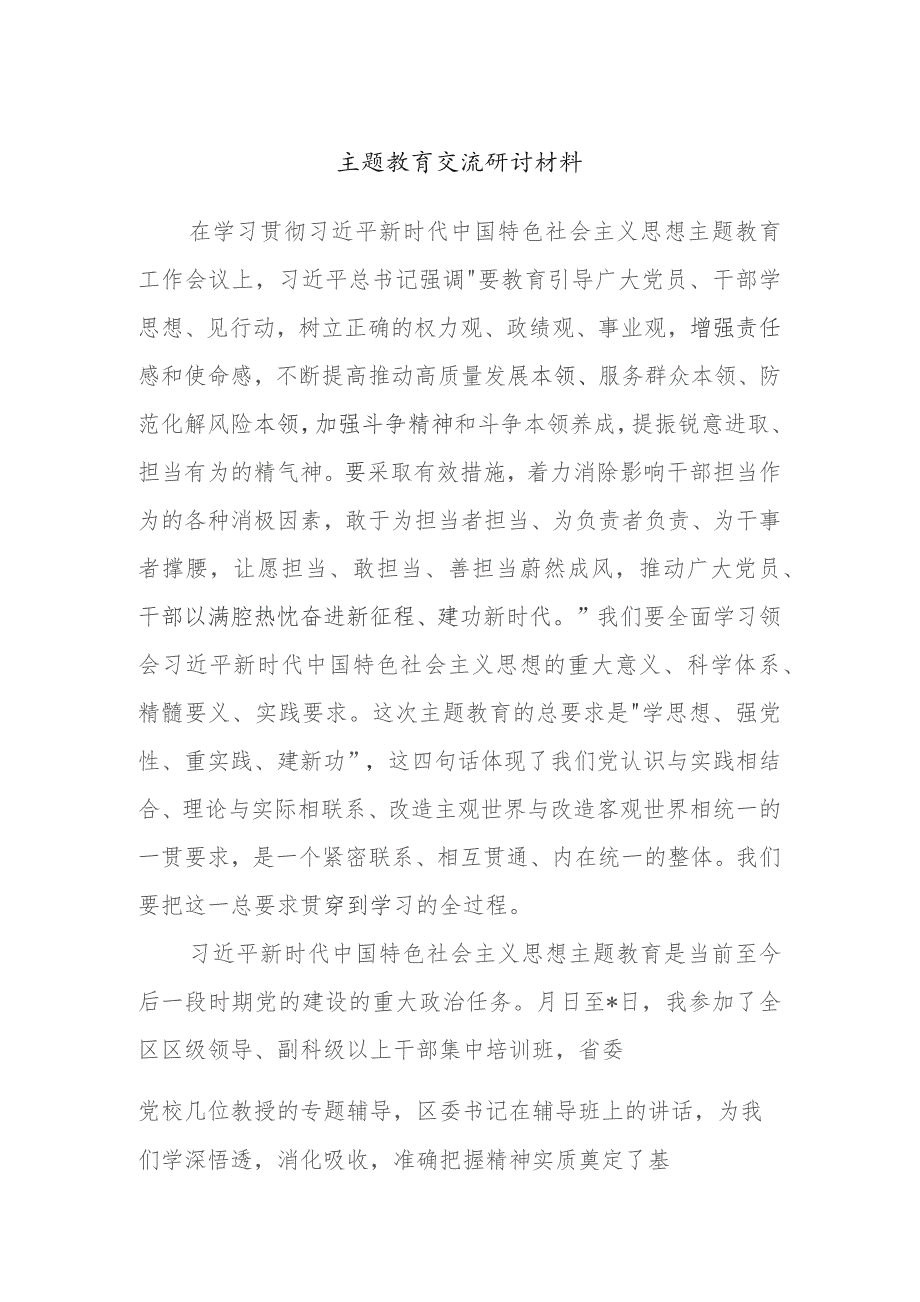 主题教育交流研讨材料
在学习贯彻习近平新时代中国特色社会主义思想主题教育
工作会议上，习近平总书记强调"要教育引导广大党员、干部学
思想、见行动，树立正确的权力观、政绩观、事业观，增强责任
感和使命感，不断提高推动高质量发展本领、服务群众本领、防
范化解风险本领，加强斗争精神和斗争本领养成，提振锐意进取、
担当有为的精气神。要采取有效措施，着力消除影响干部担当作
为的各种消极因素，敢于为担当者担当、为负责者负责、为干事
者撑腰，让愿担当、敢担当、善担当蔚然成风，推动广大党员、
干部以满腔热忱奋进新征程、建功新时代。”我们要全面学习领
会习近平新时代中国特色社会主义思想的重大意义、科学体系、
精髓要义、实践要求。这次主题教育的总要求是"学思想、强党
性、重实践、建新功”，这四句话体现了我们党认识与实践相结
合、理论与实际相联系、改造主观世界与改造客观世界相统一的
一贯要求，是一个紧密联系、相互贯通、内在统一的整体。我们
要把这一总要求贯穿到学习的全过程。
习近平新时代中国特色社会主义思想主题教育是当前至今
后一段时期党的建设的重大政治任务。月日至*日，我参加了全
区区级领导、副科级以上干部集中培训班，省委
党校几位教授的专题辅导，区委书记在辅导班上的讲话，为我
们学深悟透，消化吸收，准确把握精神实质奠定了基